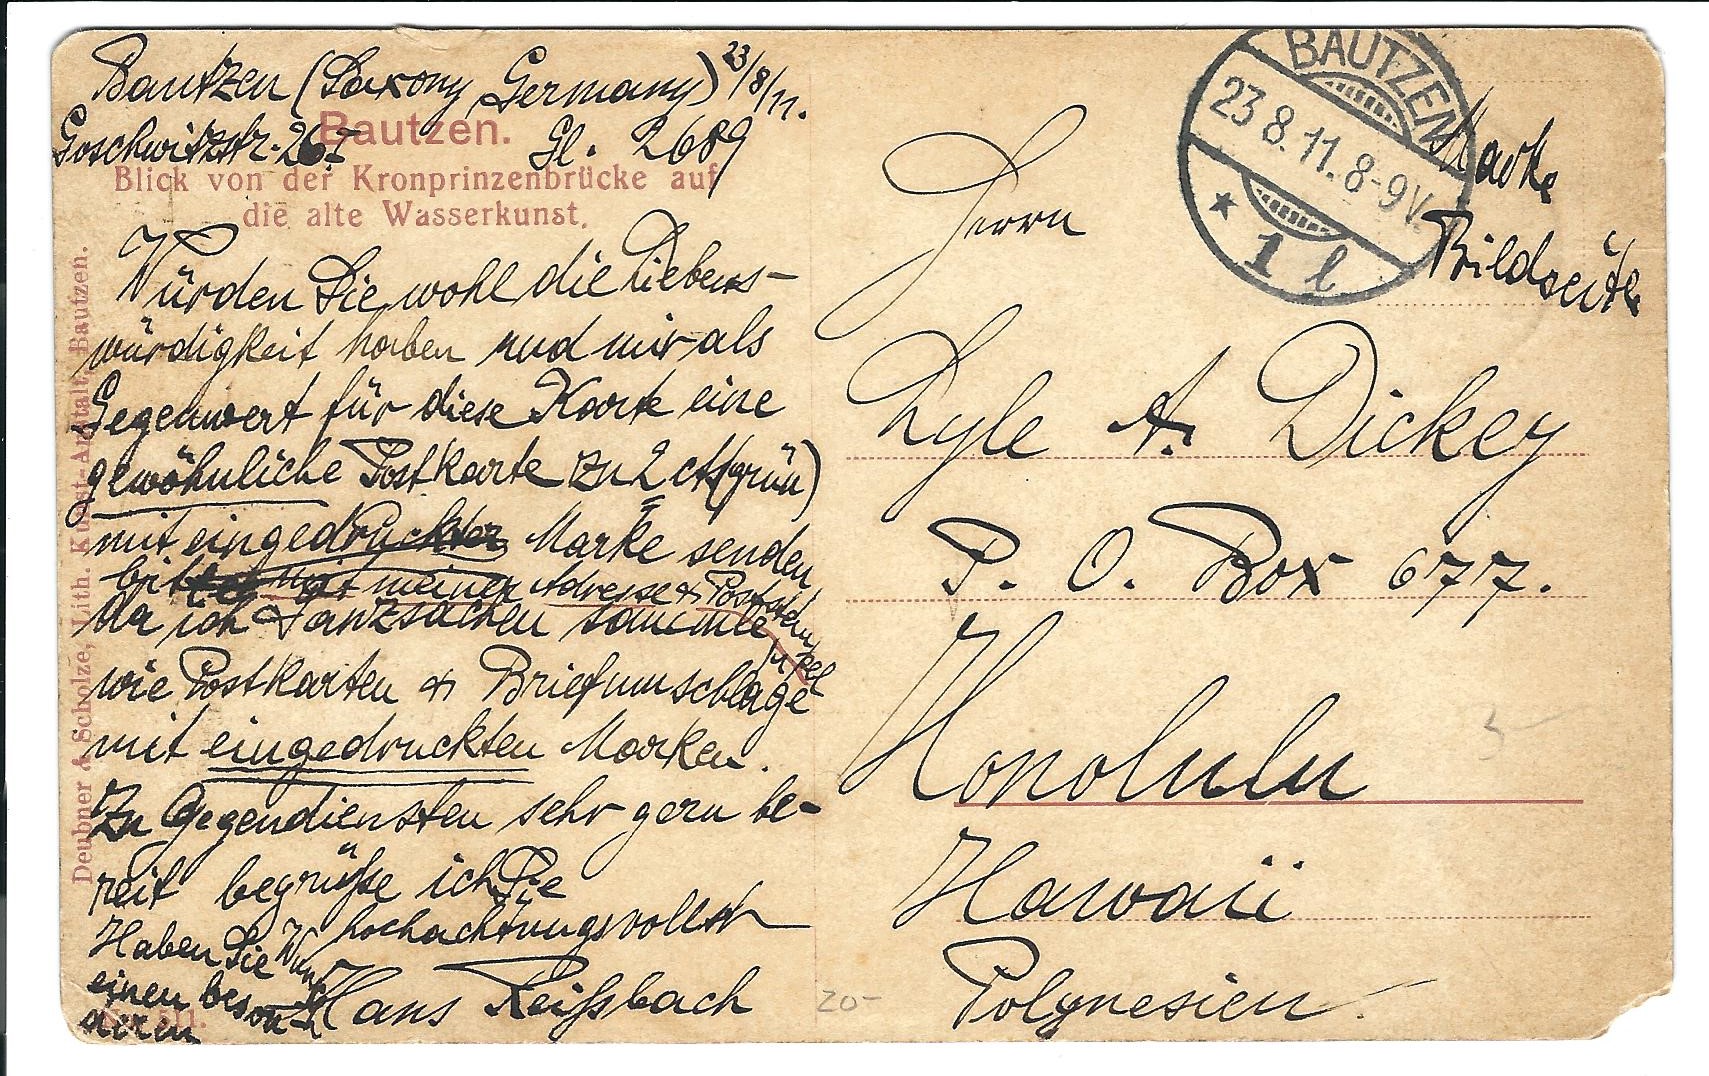 Bautzen (Saxony Germany) 23/8/11.
Goschwitzstr. 26 I Gl. 2689
Bautzen.
Blick von der Kronprinzenbrücke auf
die alte Wasserkunst.
Würden Sie wohl die Liebens-
würdigkeit haben und mir als
Gegenwert für diese Karte eine
gewöhnliche Postkarte zu 2 ct (grün)
mit eingedruckter Marke senden
mit meiner Adresse & Poststempel
da ich Ganzsachen sammle
wie Postkarten & Briefumschläge
mit eingedruckten Marken.
Zu Gegendiensten sehr gern be-
reit begrüße ich Sie
hochachtungsvollst
Hans Reißbach
Haben Sie
einen beson
deren
Deubner & Scholze, Lith. Kunst-Anstalt, Bautzen.
BAUTZEN
23 8.11.8-9V.
* 1 l
Marke
Bildseite
Herrn
Lyle A. Dickey
P. O. Box 677.
Honolulu
Hawaii
Polynesien.
20-